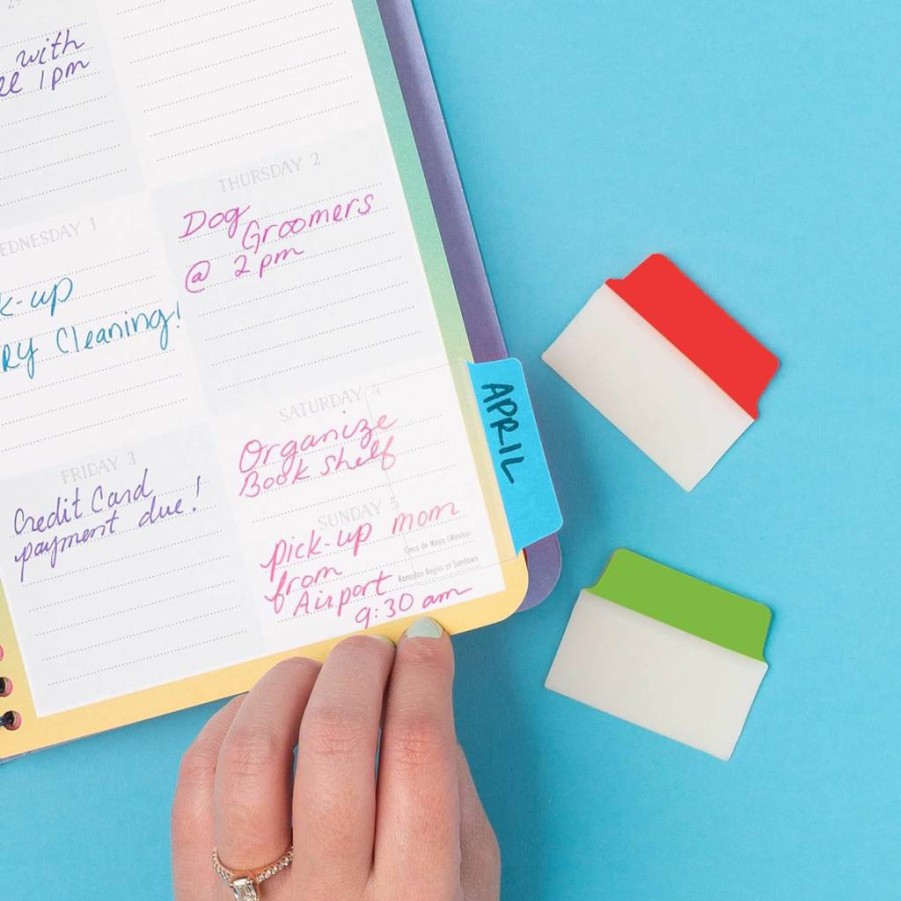 with
1pm
WEDNESDAY 1
-up
Cleaning!
THURSDAY 2
Dog
Groomers
@ 2pm
FRIDAY 3
Credit Card
payment due!
SATURDAY 4
Organize
Book Shelf
SUNDAY 5
pick-up mom
from
Airport
9:30 am
Cinco de Mayo (Mexico)
Ramadan Begins at Sundown
APRIL